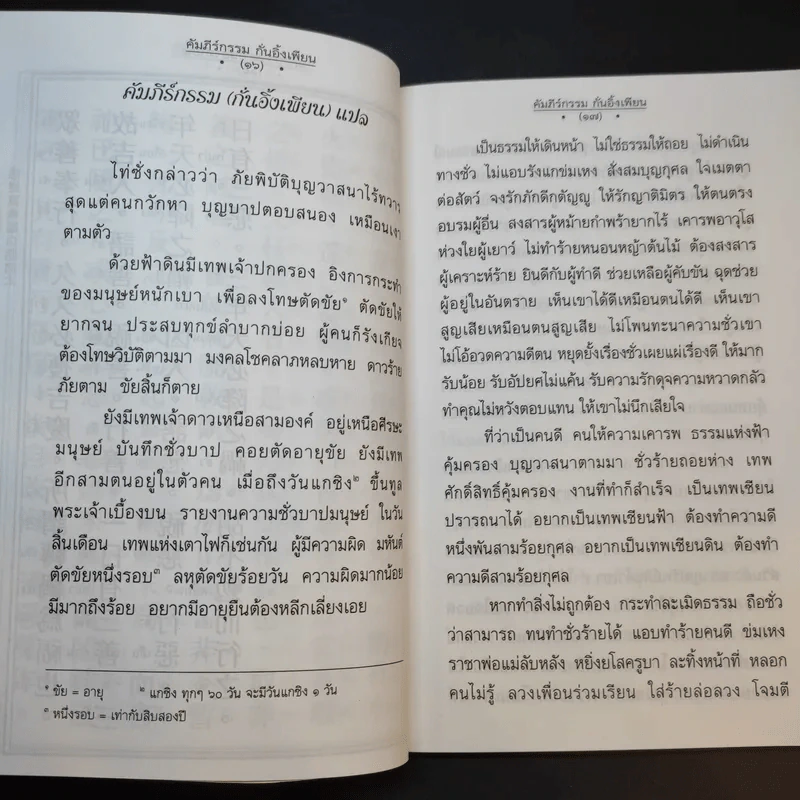 คัมภีร์กรรม กั่นอิ้งเพียน
• (๑๖) •
คัมภีร์กรรม (กั่นอิ้งเพียน) แปล
ไท่ซั่งกล่าวว่า ภัยพิบัติบุญวาสนาไร้ทวาร
สุดแต่คนกวักหา บุญบาปตอบสนอง เหมือนเงา
ตามตัว
ด้วยฟ้าดินมีเทพเจ้าปกครอง อิงการกระทำ
ของมนุษย์หนักเบา เพื่อลงโทษตัดขัย๑ ตัดขัยให้
ยากจน ประสบทุกข์ลำบากบ่อย ผู้คนก็รังเกียจ
ต้องโทษวิบัติตามมา มงคลโชคลาภหลบหาย ดาวร้าย
ภัยตาม ขัยสิ้นก็ตาย
ยังมีเทพเจ้าดาวเหนือสามองค์ อยู่เหนือศีรษะ
มนุษย์ บันทึกชั่วบาป คอยตัดอายุขัย ยังมีเทพ
อีกสามตนอยู่ในตัวคน เมื่อถึงวันแกซิง๒ ขึ้นทูล
พระเจ้าเบื้องบน รายงานความชั่วบาปมนุษย์ ในวัน
สิ้นเดือน เทพแห่งเตาไฟก็เช่นกัน ผู้มีความผิด มหันต์
ตัดขัยหนึ่งรอบ๓ ลหุตัดขัยร้อยวัน ความผิดมากน้อย
มีมากถึงร้อย อยากมีอายุยืนต้องหลีกเลี่ยงเอย
๑ ขัย = อายุ ๒ แกซิง ทุกๆ ๖๐ วัน จะมีวันแกซิง ๑ วัน
๓ หนึ่งรอบ = เท่ากับสิบสองปี
คัมภีร์กรรม กั่นอิ้งเพียน
• (๑๗) •
เป็นธรรมให้เดินหน้า ไม่ใช่ธรรมให้ถอย ไม่ดำเนิน
ทางชั่ว ไม่แอบรังแกข่มเหง สั่งสมบุญกุศล ใจเมตตา
ต่อสัตว์ จงรักภักดีกตัญญู ให้รักญาติมิตร ให้ตนตรง
อบรมผู้อื่น สงสารผู้หม้ายกำพร้ายากไร้ เคารพอาวุโส
ห่วงใยผู้เยาว์ ไม่ทำร้ายหนอนหญ้าต้นไม้ ต้องสงสาร
ผู้เคราะห์ร้าย ยินดีกับผู้ทำดี ช่วยเหลือผู้คับขัน ฉุดช่วย
ผู้อยู่ในอันตราย เห็นเขาได้ดีเหมือนตนได้ดี เห็นเขา
สูญเสียเหมือนตนสูญเสีย ไม่โพนทะนาความชั่วเขา
ไม่โอ้อวดความดีตน หยุดยั้งเรื่องชั่วเผยแผ่เรื่องดี ให้มาก
รับน้อย รับอัปยศไม่แค้น รับความรักดุจความหวาดกลัว
ทำคุณไม่หวังตอบแทน ให้เขาไม่นึกเสียใจ
ที่ว่าเป็นคนดี คนให้ความเคารพ ธรรมแห่งฟ้า
คุ้มครอง บุญวาสนาตามมา ชั่วร้ายถอยห่าง เทพ
ศักดิ์สิทธิ์คุ้มครอง งานที่ทำก็สำเร็จ เป็นเทพเซียน
ปรารถนาได้ อยากเป็นเทพเซียนฟ้า ต้องทำความดี
หนึ่งพันสามร้อยกุศล อยากเป็นเทพเซียนดิน ต้องทำ
ความดีสามร้อยกุศล
หากทำสิ่งไม่ถูกต้อง กระทำละเมิดธรรม ถือชั่ว
ว่าสามารถ ทนทำชั่วร้ายได้ แอบทำร้ายคนดี ข่มเหง
ราชาพ่อแม่ลับหลัง หยิ่งยโสครูบา ละทิ้งหน้าที่ หลอก
คนไม่รู้ ลวงเพื่อนร่วมเรียน ใส่ร้ายล่อลวง โจมตี